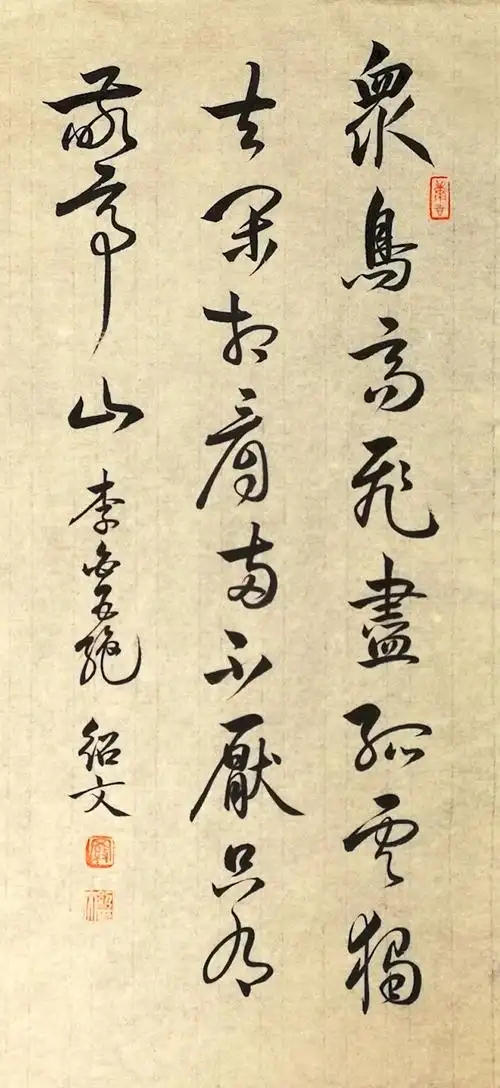 衆鳥高飛盡孤雲獨
去閑相看兩不厭只有
敬亭山 李白五絕 紹文